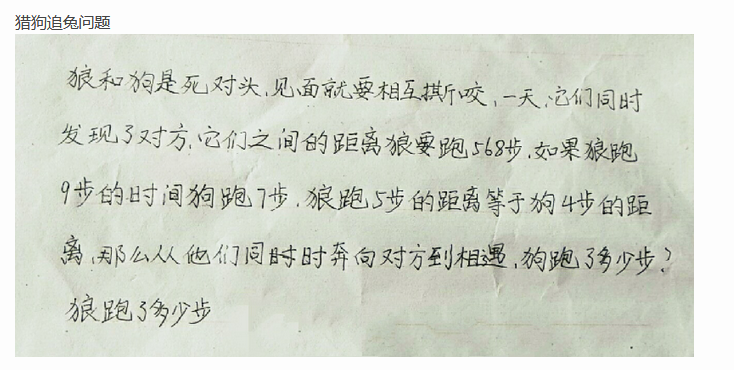 猎狗追兔问题
狼和狗是死对头,见面就要相互撕咬,一天,它们同时
发现了对方,它们之间的距离狼要跑568步,如果狼跑
9步的时间狗跑7步,狼跑5步的距离等于狗4步的距
离,那么从他们同时时奔向对方到相遇,狗跑了多少步?
狼跑了多少步